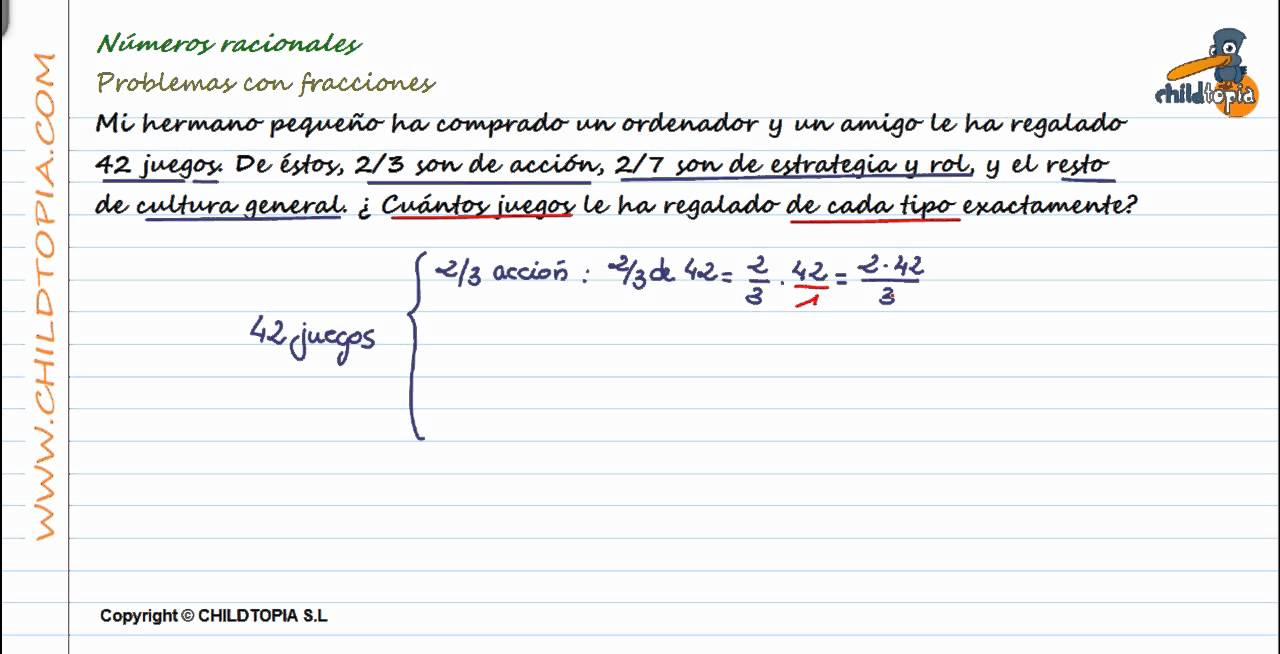 Números racionales
Problemas con fracciones
Mi hermano pequeño ha comprado un ordenador y un amigo le ha regalado
42 juegos. De éstos, 2/3 son de acción, 2/7 son de estrategia y rol, y el resto
de cultura general. ¿ Cuántos juegos le ha regalado de cada tipo exactamente?
2/3 acción : 2/3 de 42 = 2/3 · 42/1 = 2·42/3
42 juegos
Copyright © CHILDTOPIA S.L
WWW.CHILDTOPIA.COM
childtopia